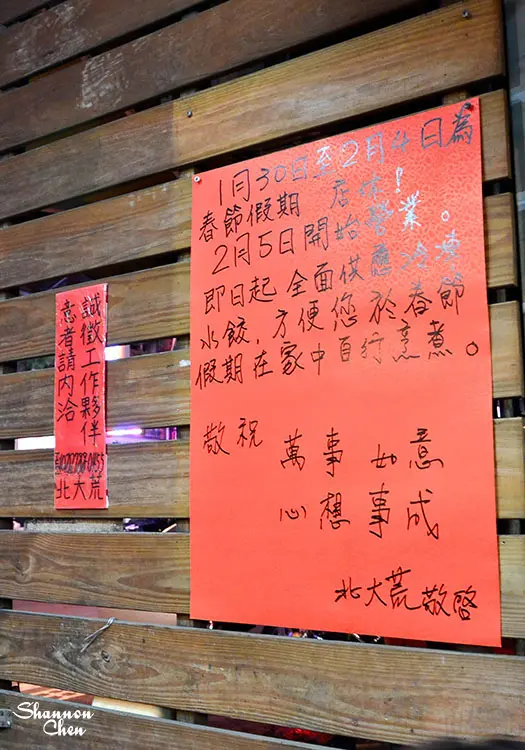 1月30日至2月4日為
春節假期 店休！
2月5日開始營業。
即日起全面供應冷凍
水餃，方便您於春節
假期在家中自行烹煮。
敬祝
萬事如意
心想事成
北大荒敬啓
誠徵工作夥伴
意者請內洽
北大荒
Shannon
Chen